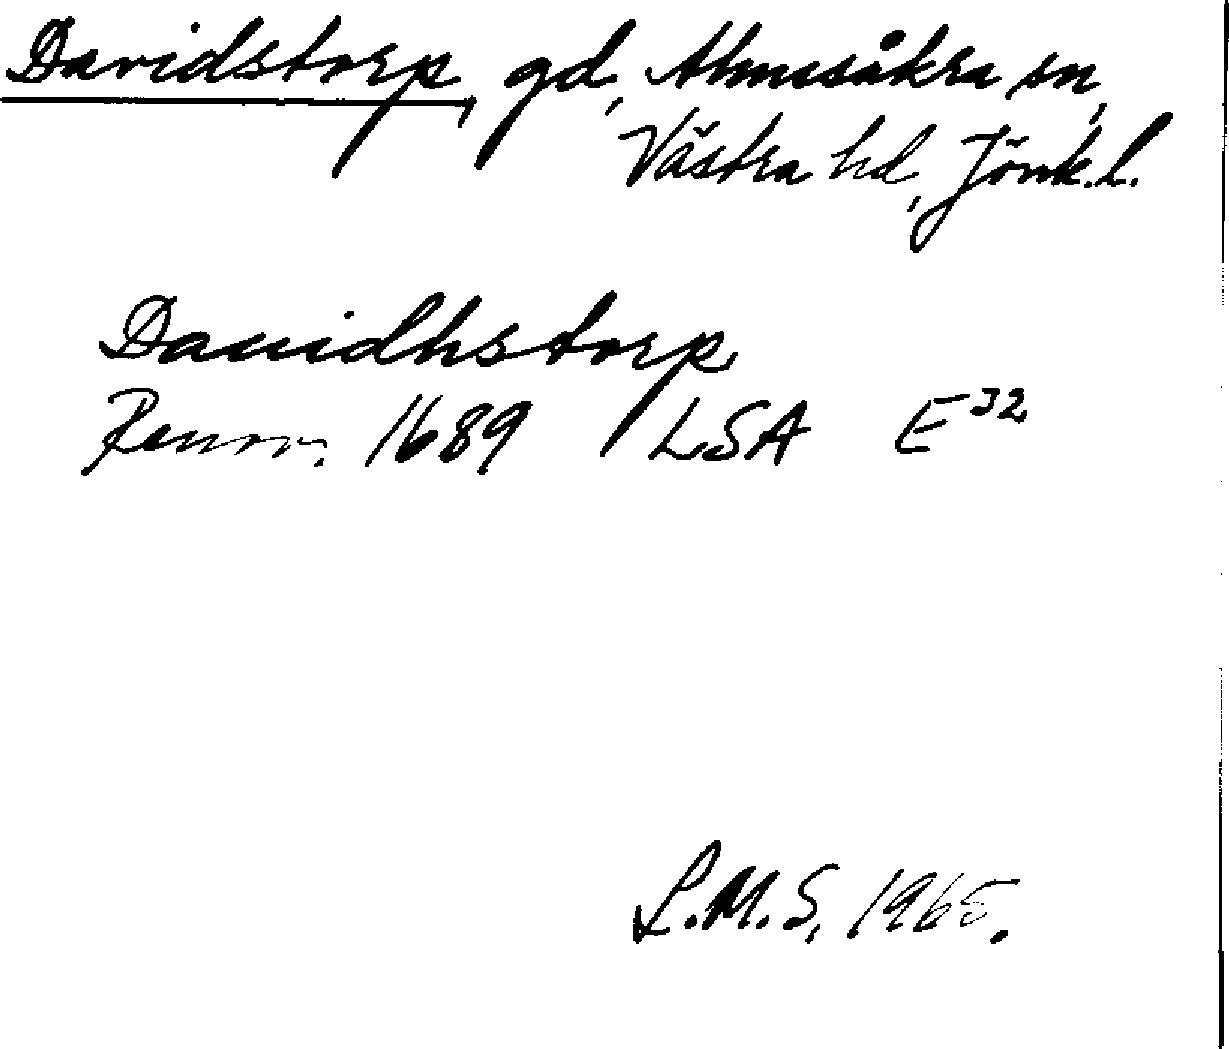 Davidstorp, gd, Almesåkra sn,
Västra hd, Jönk.l.
Dauidhstorp
Rennv. 1689 LSA E³²
L.M.S, 1965.